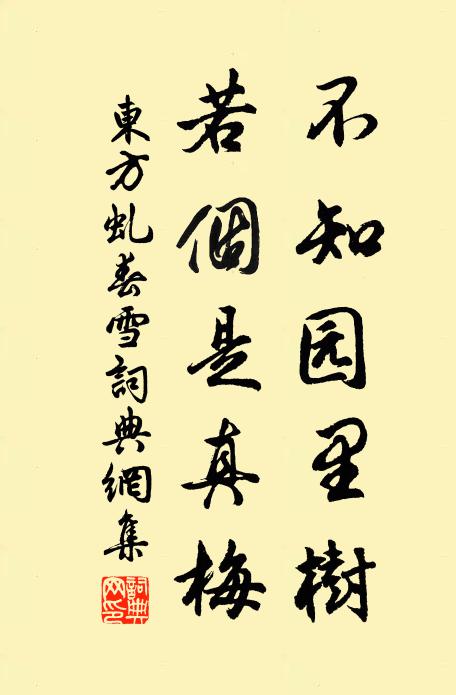 不知园里樹
若個是真梅
東方虬春雪詞典網集
詞典網印